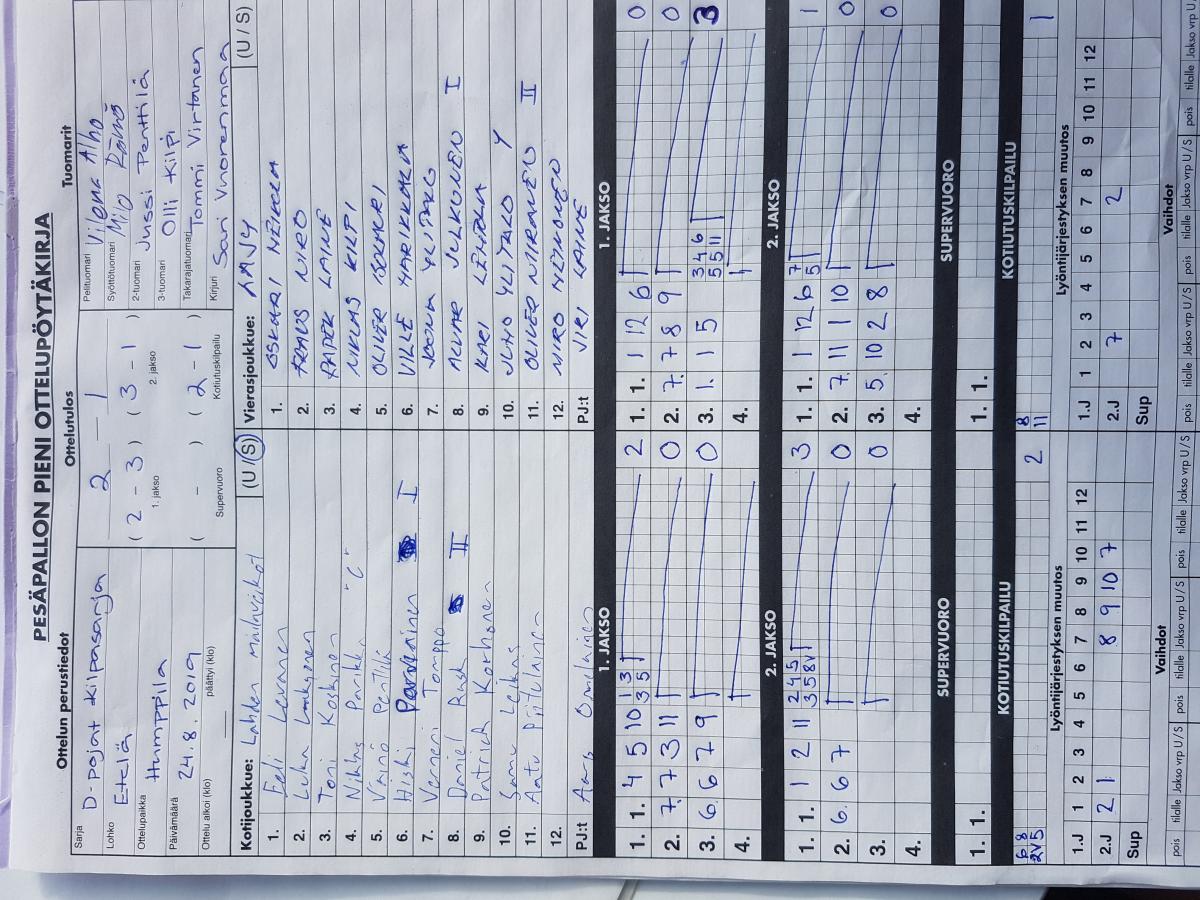 PESÄPALLON PIENI OTTELUPÖYTÄKIRJA
Ottelun perustiedot
Sarja D-pojat kilpasarja
Lohko Etelä
Ottelupaikka Humppila
Päivämäärä 24.8.2019
Ottelu alkoi (klo) päättyi (klo)
Ottelutulos
2 - 1
( 2 - 3 ) ( 3 - 1 )
1. jakso 2. jakso
( - ) ( 2 - 1 )
Supervuoro Kotiutuskilpailu
Tuomarit
Pelituomari Vilema Alho
Syöttötuomari Milo Rämö
2-tuomari Jussi Penttilä
3-tuomari Olli Kilpi
Takarajatuomari Tommi Virtanen
Kirjuri Sari Vuorenmaa
Kotijoukkue: Lahden mailaveikot (U / S)
1. Eeli Levanen
2. Luka
3. Toni Koskinen
4. Niklas Parikka "C"
5. Väinö Penttilä
6. Hiski I
7. Verneri Tomppo
8. Daniel Rask II
9. Patrick Korhonen
10. Samu Leikas
11. Aatu Piitulainen
12.
PJ:t
Vierasjoukkue: LAVY (U / S)
1. OSKARI
2. NIRO
3. LAINE
4. NIKLAS KILPI
5. OLIVER
6. VILLE YARIKKALA
7. JOONA YLITALO
8. JULKUNEN I
9. KARI
10. JUHO YLITALO Y
11. OLIVER II
12. MIRO
PJ:t LAINE
1. JAKSO
1. 1. 4 5 10 1 3 3 5 2
2. 7. 7 3 11 0
3. 6. 6 7 9 0
4.
1. JAKSO
1. 1. 1 12 6 0
2. 7. 7 8 9 0
3. 1. 1 5 3 4 6 5 5 11 3
4.
2. JAKSO
1. 1. 1 2 11 2 4 5 3 5 8V 3
2. 6. 6 7 0
3. 0
4.
2. JAKSO
1. 1. 1 12 6 7 5 1
2. 7. 11 1 10 0
3. 5. 10 2 8 0
4.
SUPERVUORO
1. 1.
SUPERVUORO
1. 1.
KOTIUTUSKILPAILU
6 8
2V5 2
KOTIUTUSKILPAILU
8
11 1
Lyöntijärjestyksen muutos
1.J 1 2 3 4 5 6 7 8 9 10 11 12
2.J 2 1 8 9 10 7
Sup
Lyöntijärjestyksen muutos
1.J 1 2 3 4 5 6 7 8 9 10 11 12
2.J 7 2
Sup
Vaihdot
pois tilalle Jakso vrp U/S pois tilalle Jakso vrp U/S
Vaihdot
pois tilalle Jakso vrp U/S pois tilalle Jakso vrp U